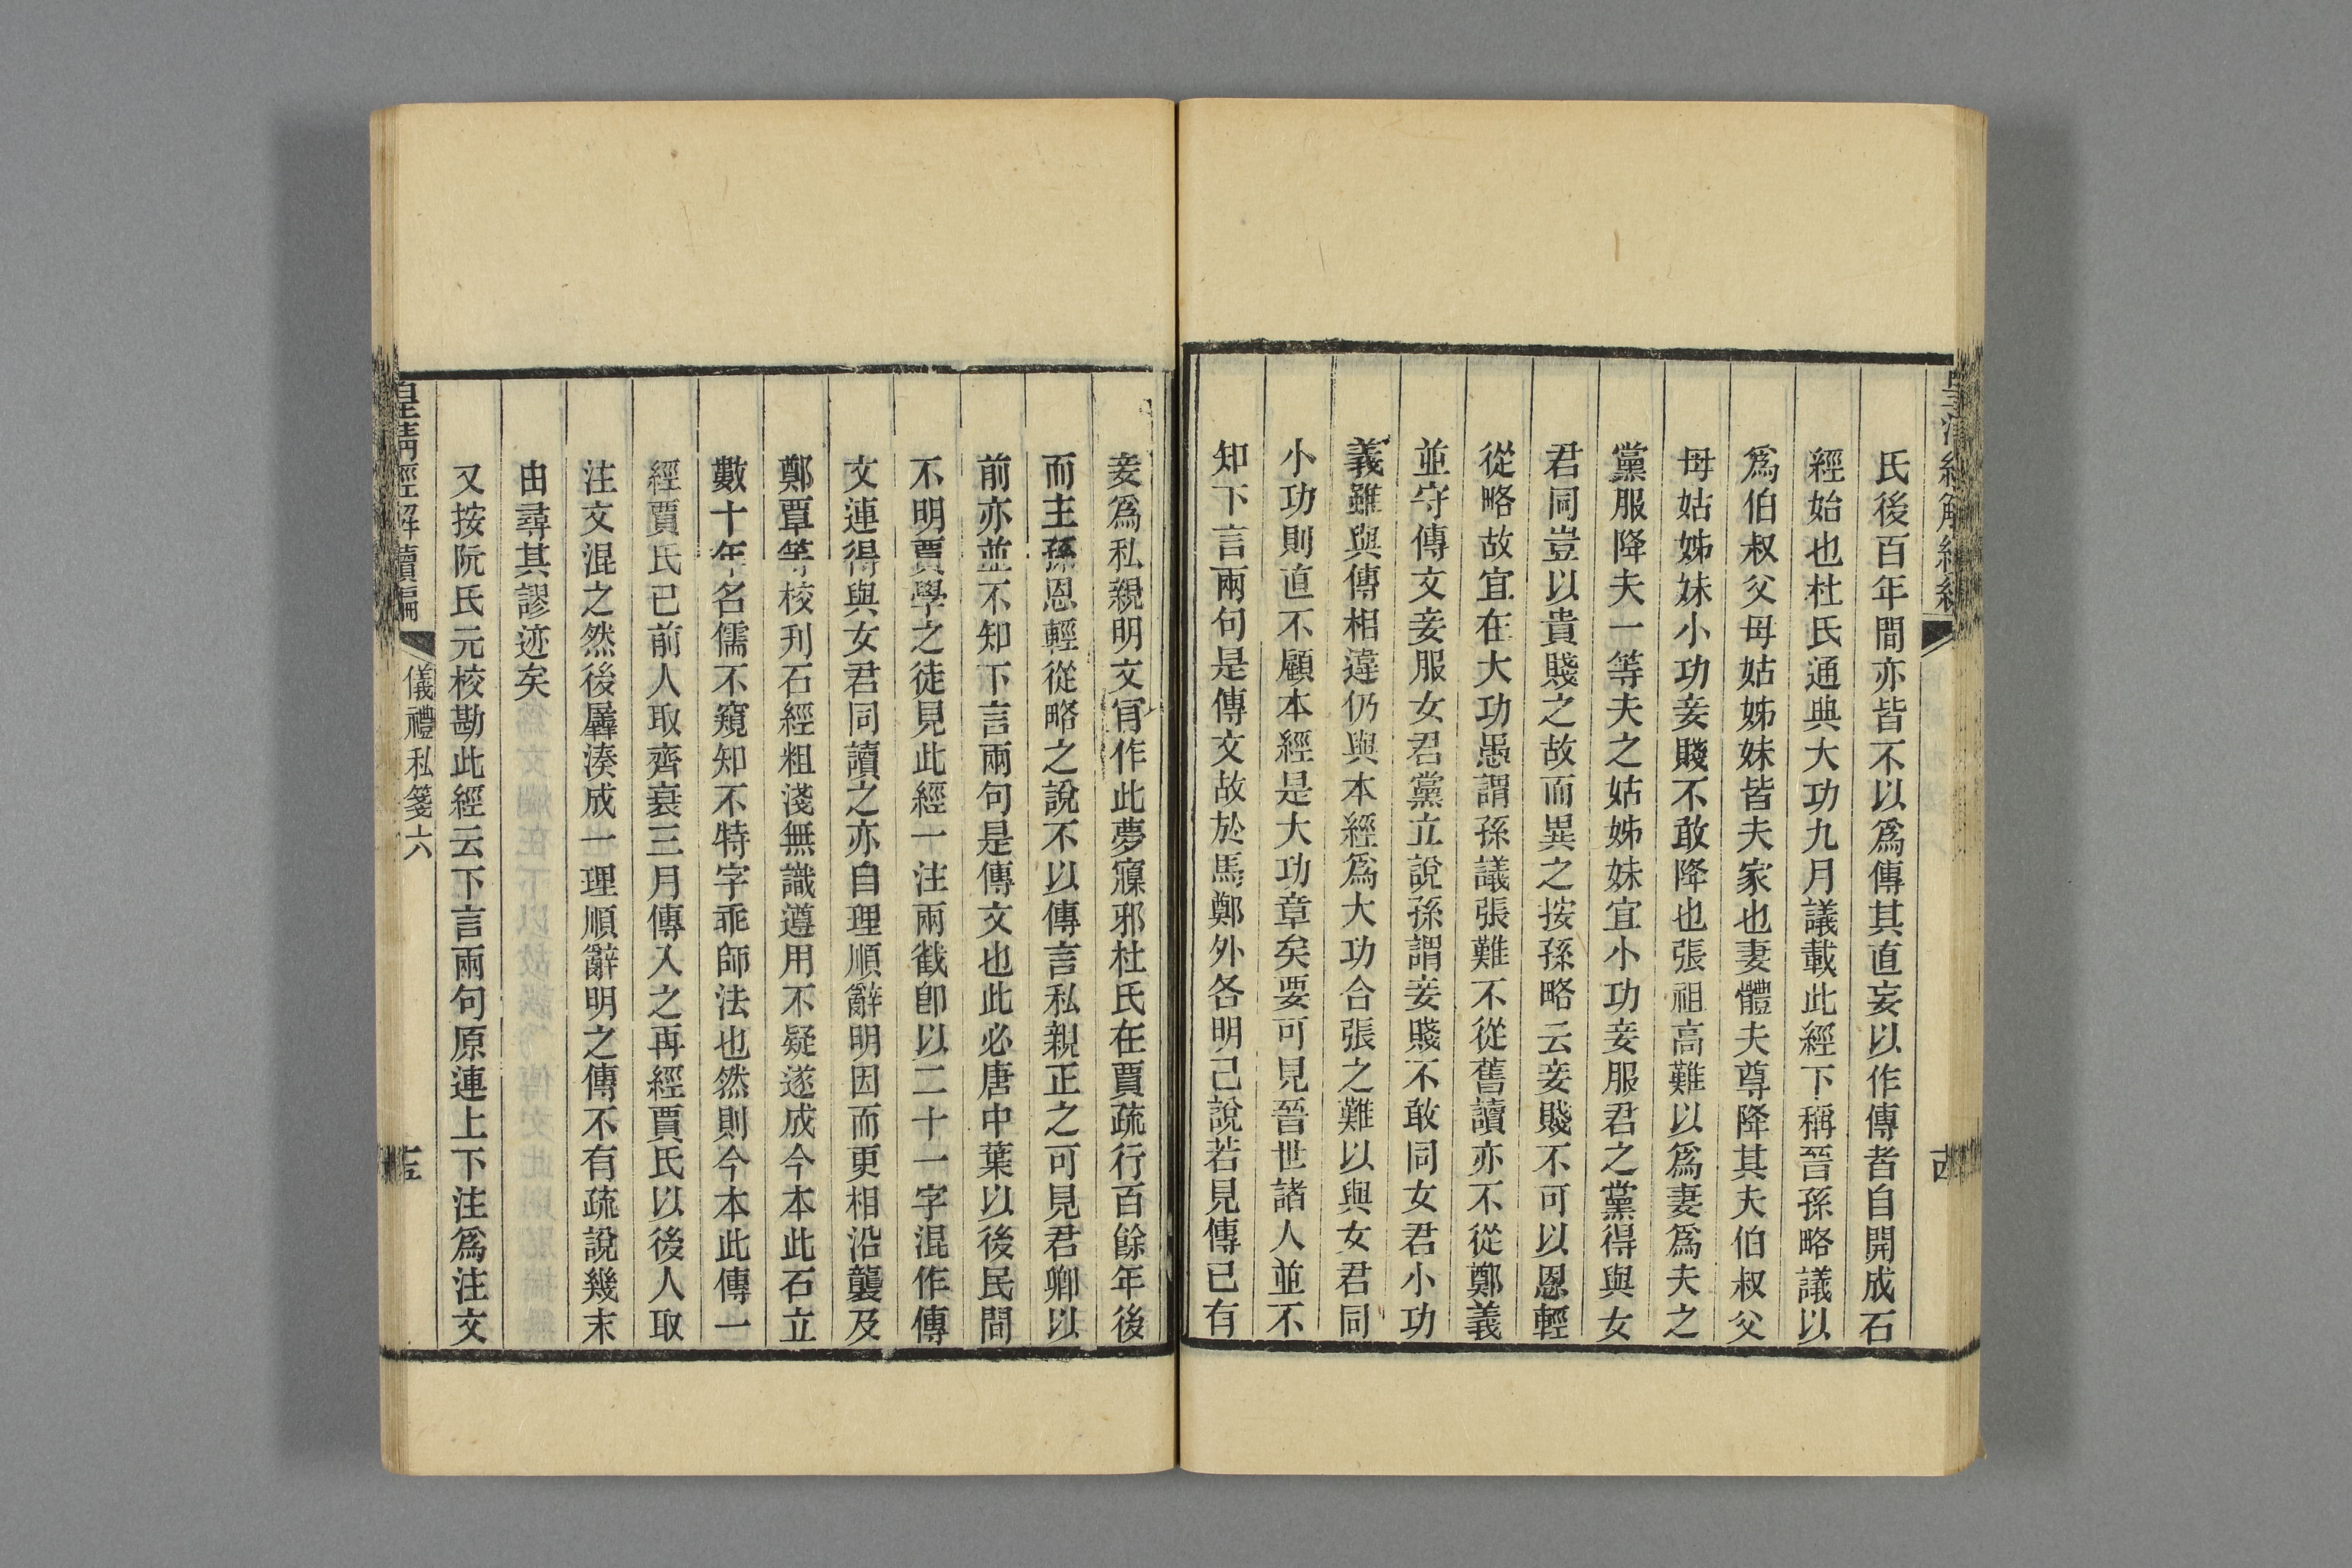 皇清經解續編
古
氏後百年間亦皆不以爲傳其直妄以作傳者自開成石
經始也杜氏通典大功九月議載此經下稱晉孫略議以
爲伯叔父母姑姊妹皆夫家也妻體夫尊降其夫伯叔父
母姑姊妹小功妾賤不敢降也張祖高難以爲妻爲夫之
黨服降夫一等夫之姑姊妹宜小功妾服君之黨得與女
君同豈以貴賤之故而異之按孫略云妾賤不可以恩輕
從略故宜在大功愚謂孫議張難不從舊讀亦不從鄭義
並守傳文妾服女君黨立說孫謂妾賤不敢同女君小功
義雖與傳相違仍與本經爲大功合張之難以與女君同
小功則直不顧本經是大功章矣要可見晉世諸人並不
知下言兩句是傳文故於馬鄭外各明己說若見傳已有
妾爲私親明文肯作此夢寱邪杜氏在賈疏行百餘年後
而主孫恩輕從略之說不以傳言私親正之可見君卿以
前亦並不知下言兩句是傳文也此必唐中葉以後民間
不明賈學之徒見此經一注兩截卽以二十一字混作傳
文連得與女君同讀之亦自理順辭明因而更相沿襲及
鄭覃等校刋石經粗淺無識遵用不疑遂成今本此石立
數十年名儒不窺知不特字乖師法也然則今本此傳一
經賈氏已前人取齊衰三月傳入之再經賈氏以後人取
注文混之然後羼湊成一理順辭明之傳不有疏說幾末
由尋其謬迹矣
又按阮氏元校勘此經云下言兩句原連上下注爲注文
皇清經解續編
儀禮私箋六